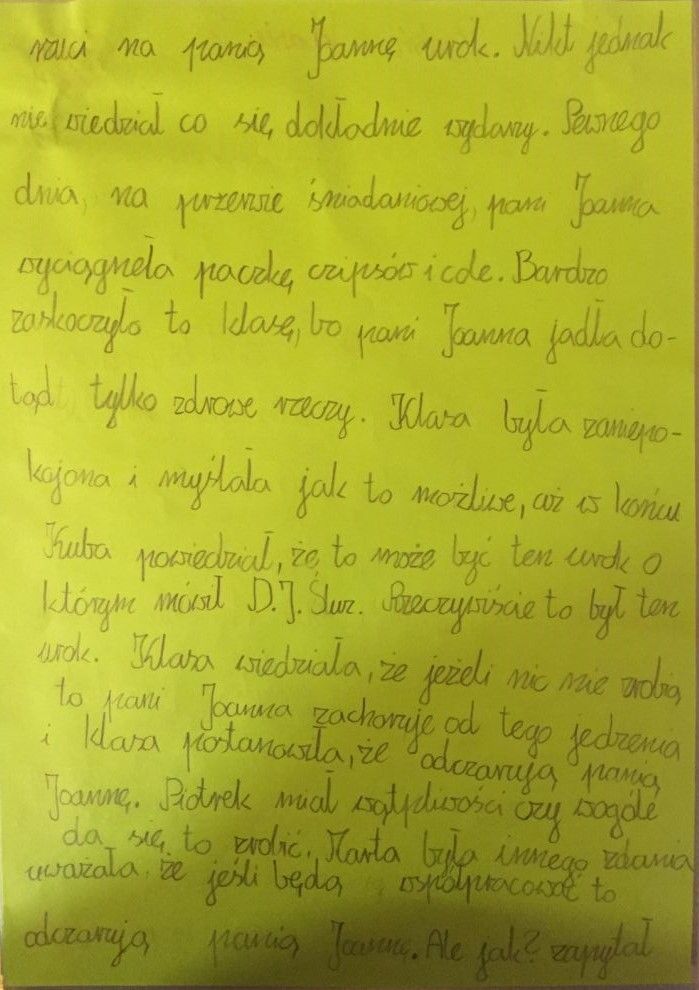 rzuci na panią Joannę urok. Nikt jednak
nie wiedział co się dokładnie wydarzy. Pewnego
dnia, na przerwie śniadaniowej, pani Joanna
wyciągneła paczkę czipsów i cole. Bardzo
zaskoczyło to klasę, bo pani Joanna jadła do-
tąd tylko zdrowe rzeczy. Klasa była zaniepo-
kojona i myślała jak to możliwe, aż w końcu
Kuba powiedział, że to może być ten urok o
którym mówił D.J. Ślur. Rzeczywiście to był ten
urok. Klasa wiedziała, że jeżeli nic nie zrobią
to pani Joanna zachoruje od tego jedzenia
i klasa postanowiła, że odczarują panią
Joannę. Piotrek miał wątpliwości czy wogóle
da się to zrobić. Marta była innego zdania
uważała że jeśli będą współpracować to
odczarują panią Joannę. Ale jak? zapytał